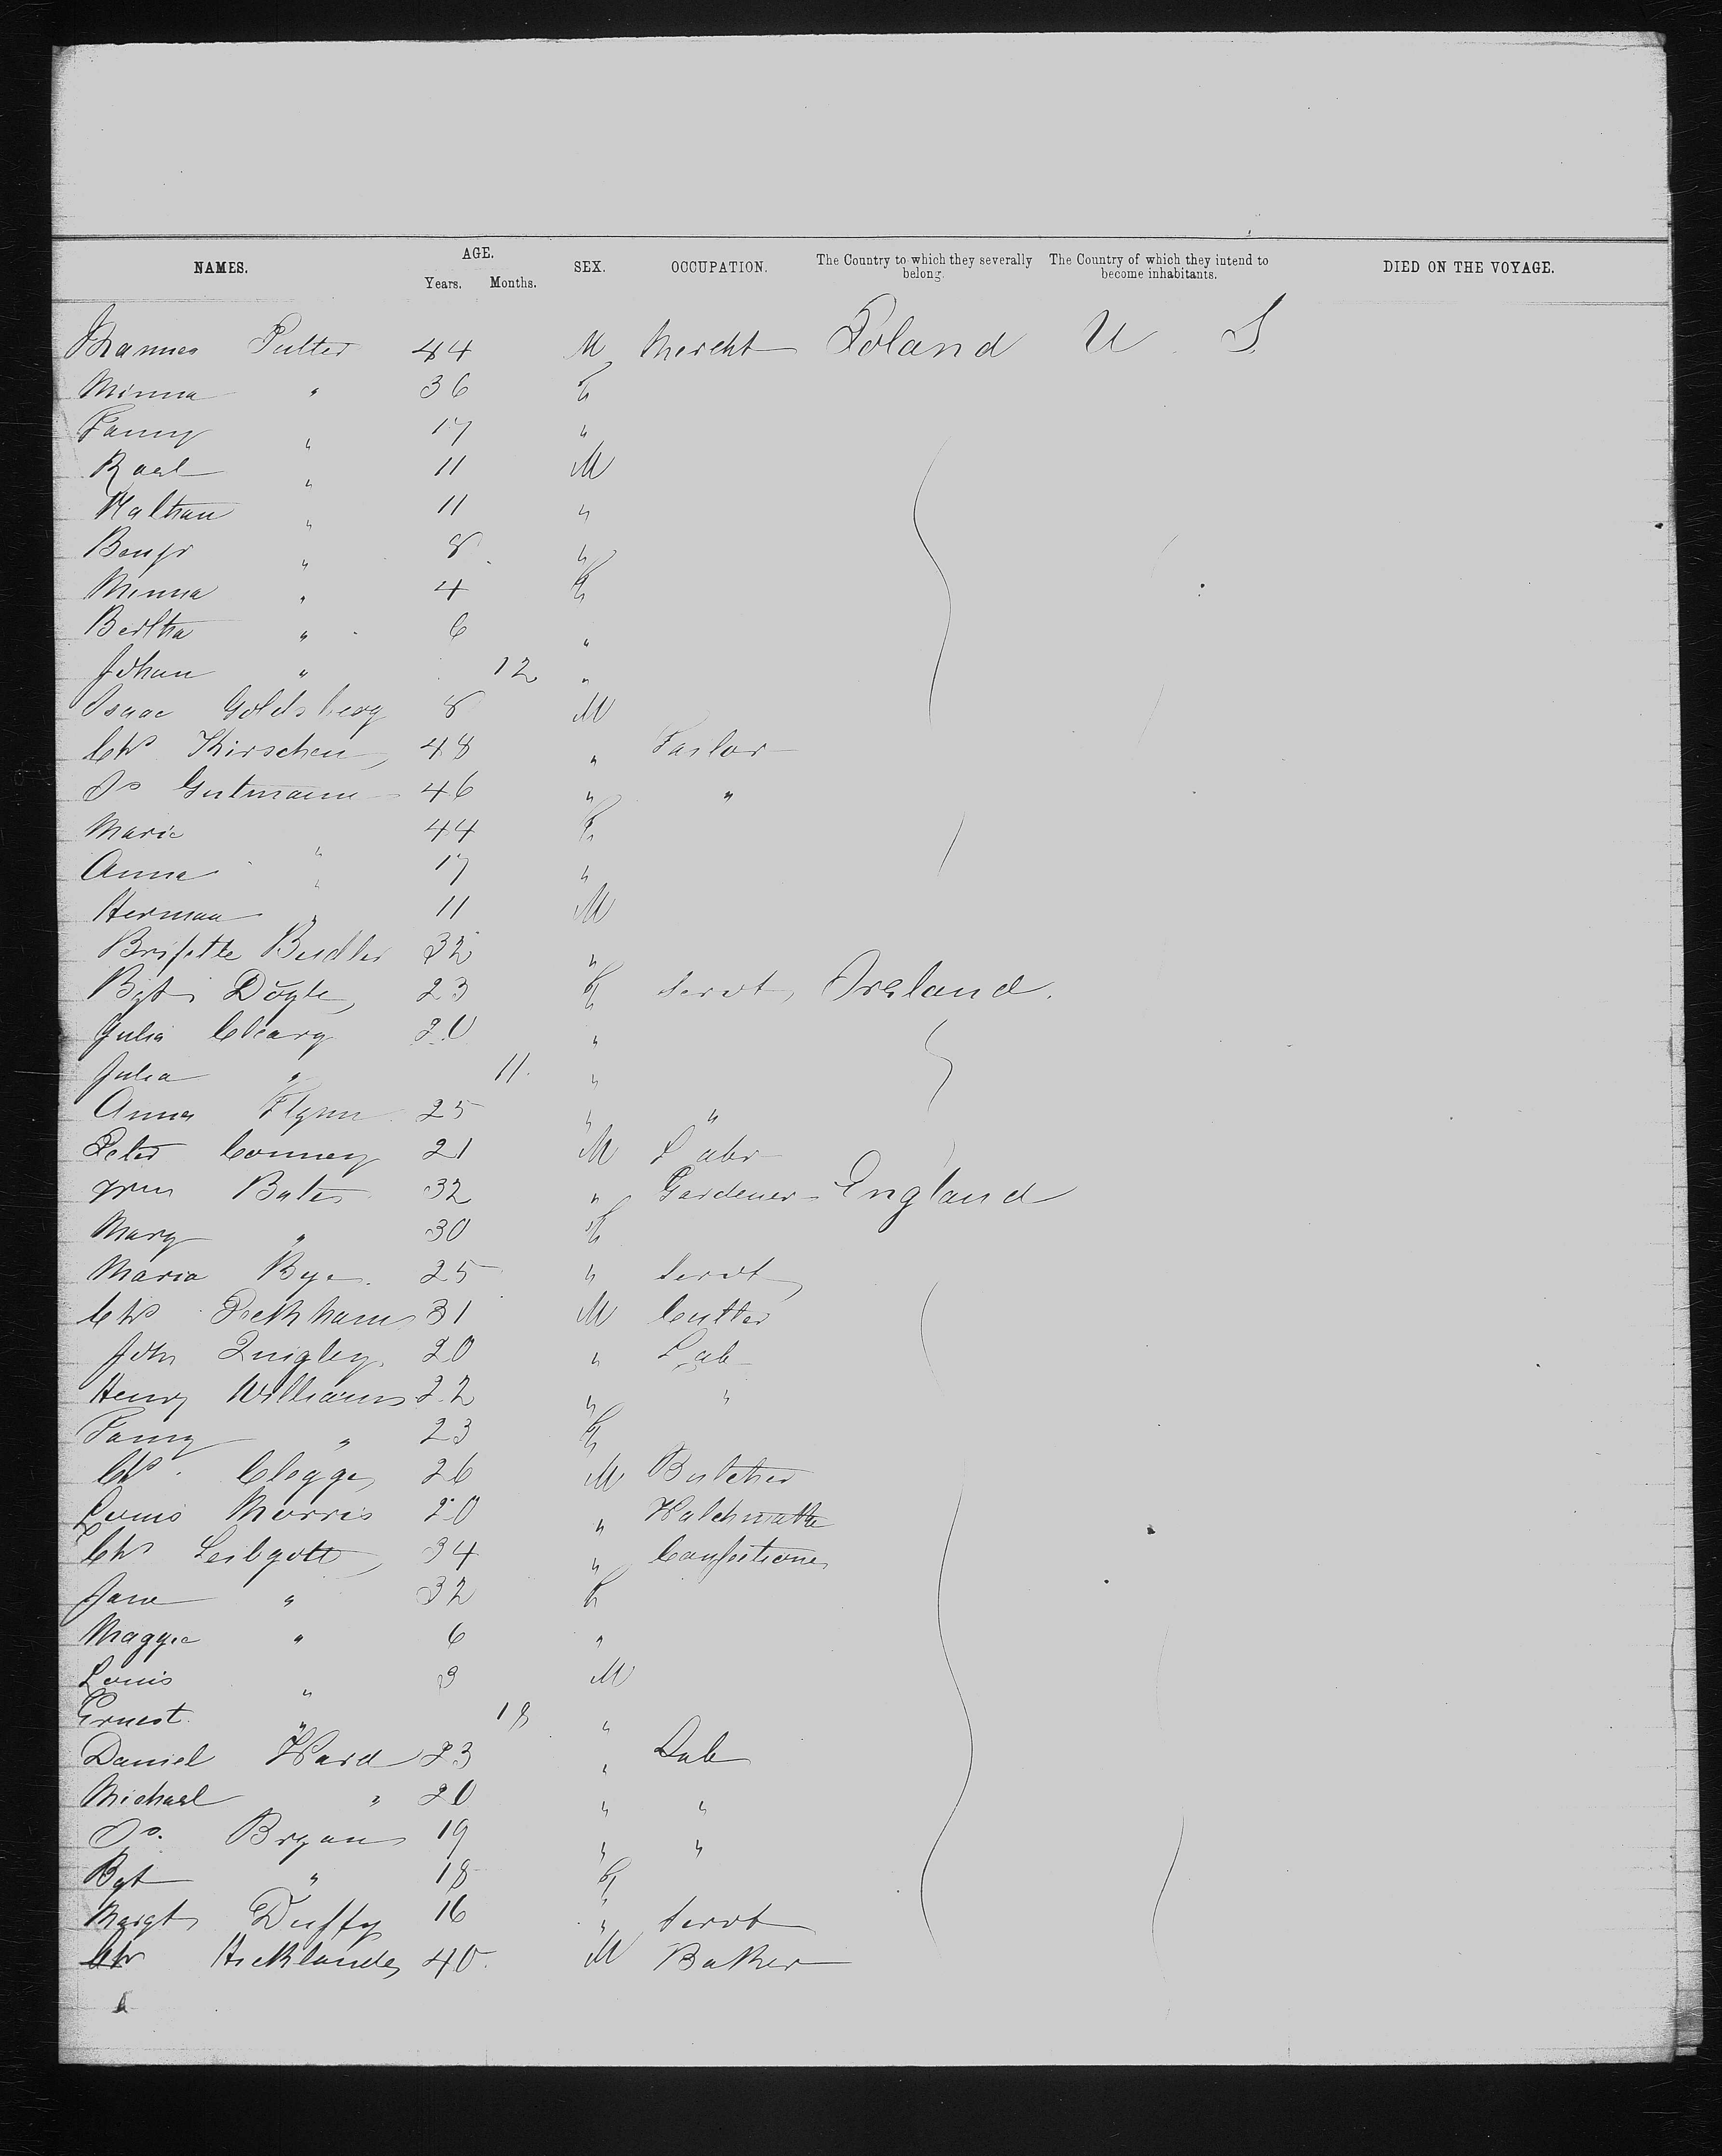 NAMES. AGE. Years. Months. SEX. OCCUPATION. The Country to which they severally belong. The Country of which they intend to become inhabitants. DIED ON THE VOYAGE.
Mannes Pulter 44 M Mercht Poland U S
Minna " 36 F
Fanny " 17 "
Roal " 11 M
Nathan " 11 "
Benj " 8 "
Minna " 4 F
Bertha " 6 "
Johan " 12 "
Isaac Goldsberg 8 M
Chs Kirschen 48 " Tailor
Js Gutmann 46 " "
Marie " 44 F
Anna " 17 "
Herman " 11 M
Budler 32 "
Bgt Doyle 23 F Servt Ireland.
Julia Cleary 20 "
Julia " 11 "
Anna Flynn 25 " "
Peter Conney 21 M Labr
Wm Bates 32 " Gardener England
Mary " 30 F
Maria Bye 25 " Servt
Chs Peckham 31 M Cutter
John Quigley 20 " Lab
Henry Williams 22 " "
Fanny " 23 F
Chs Clegge 26 M Butcher
Louis Morris 20 " Watchmaker
Chs Leibgott 34 " Confectioner
Jane " 32 F
Maggie " 6 "
Louis " 3 M
Ernest " 18 "
Daniel Ward 23 " Lab
Michael " 20 " "
Js. Bryan 19 " "
Bgt " 18 F
Margt Duffy 16 " Servt
Chr Hicklander 40 M Baker